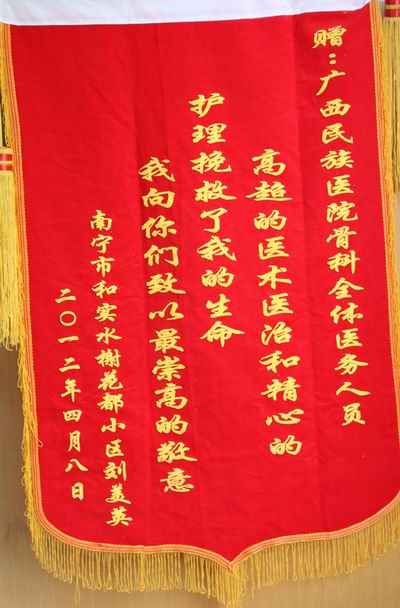 赠：广西民族医院骨科全体医务人员
高超的医术医治和精心的
护理挽救了我的生命
我向你们致以最崇高的敬意
南宁市和实水榭花都小区刘美英
二〇一二年四月八日